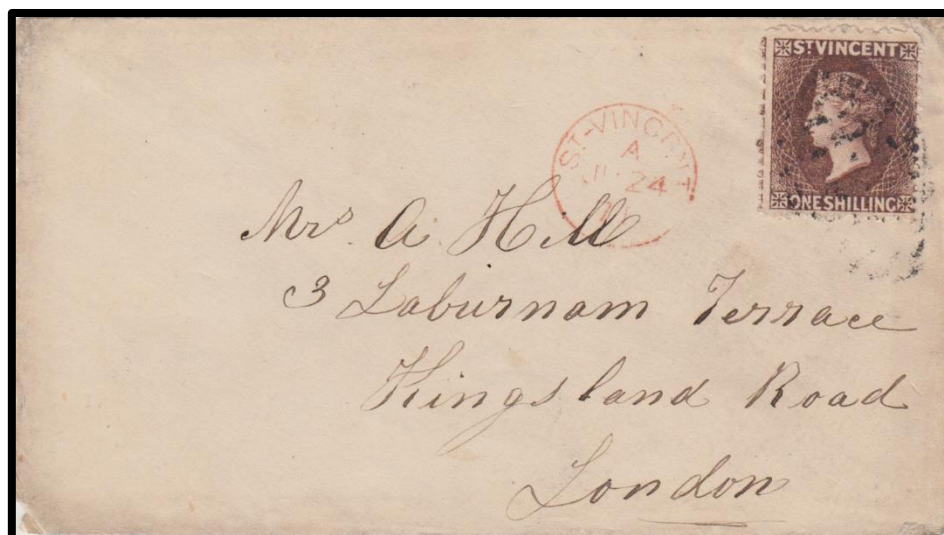 ST VINCENT
ONE SHILLING
ST-VINCENT
A
24
Mrs. A. Hill
3 Laburnam Terrace
Kingsland Road
London